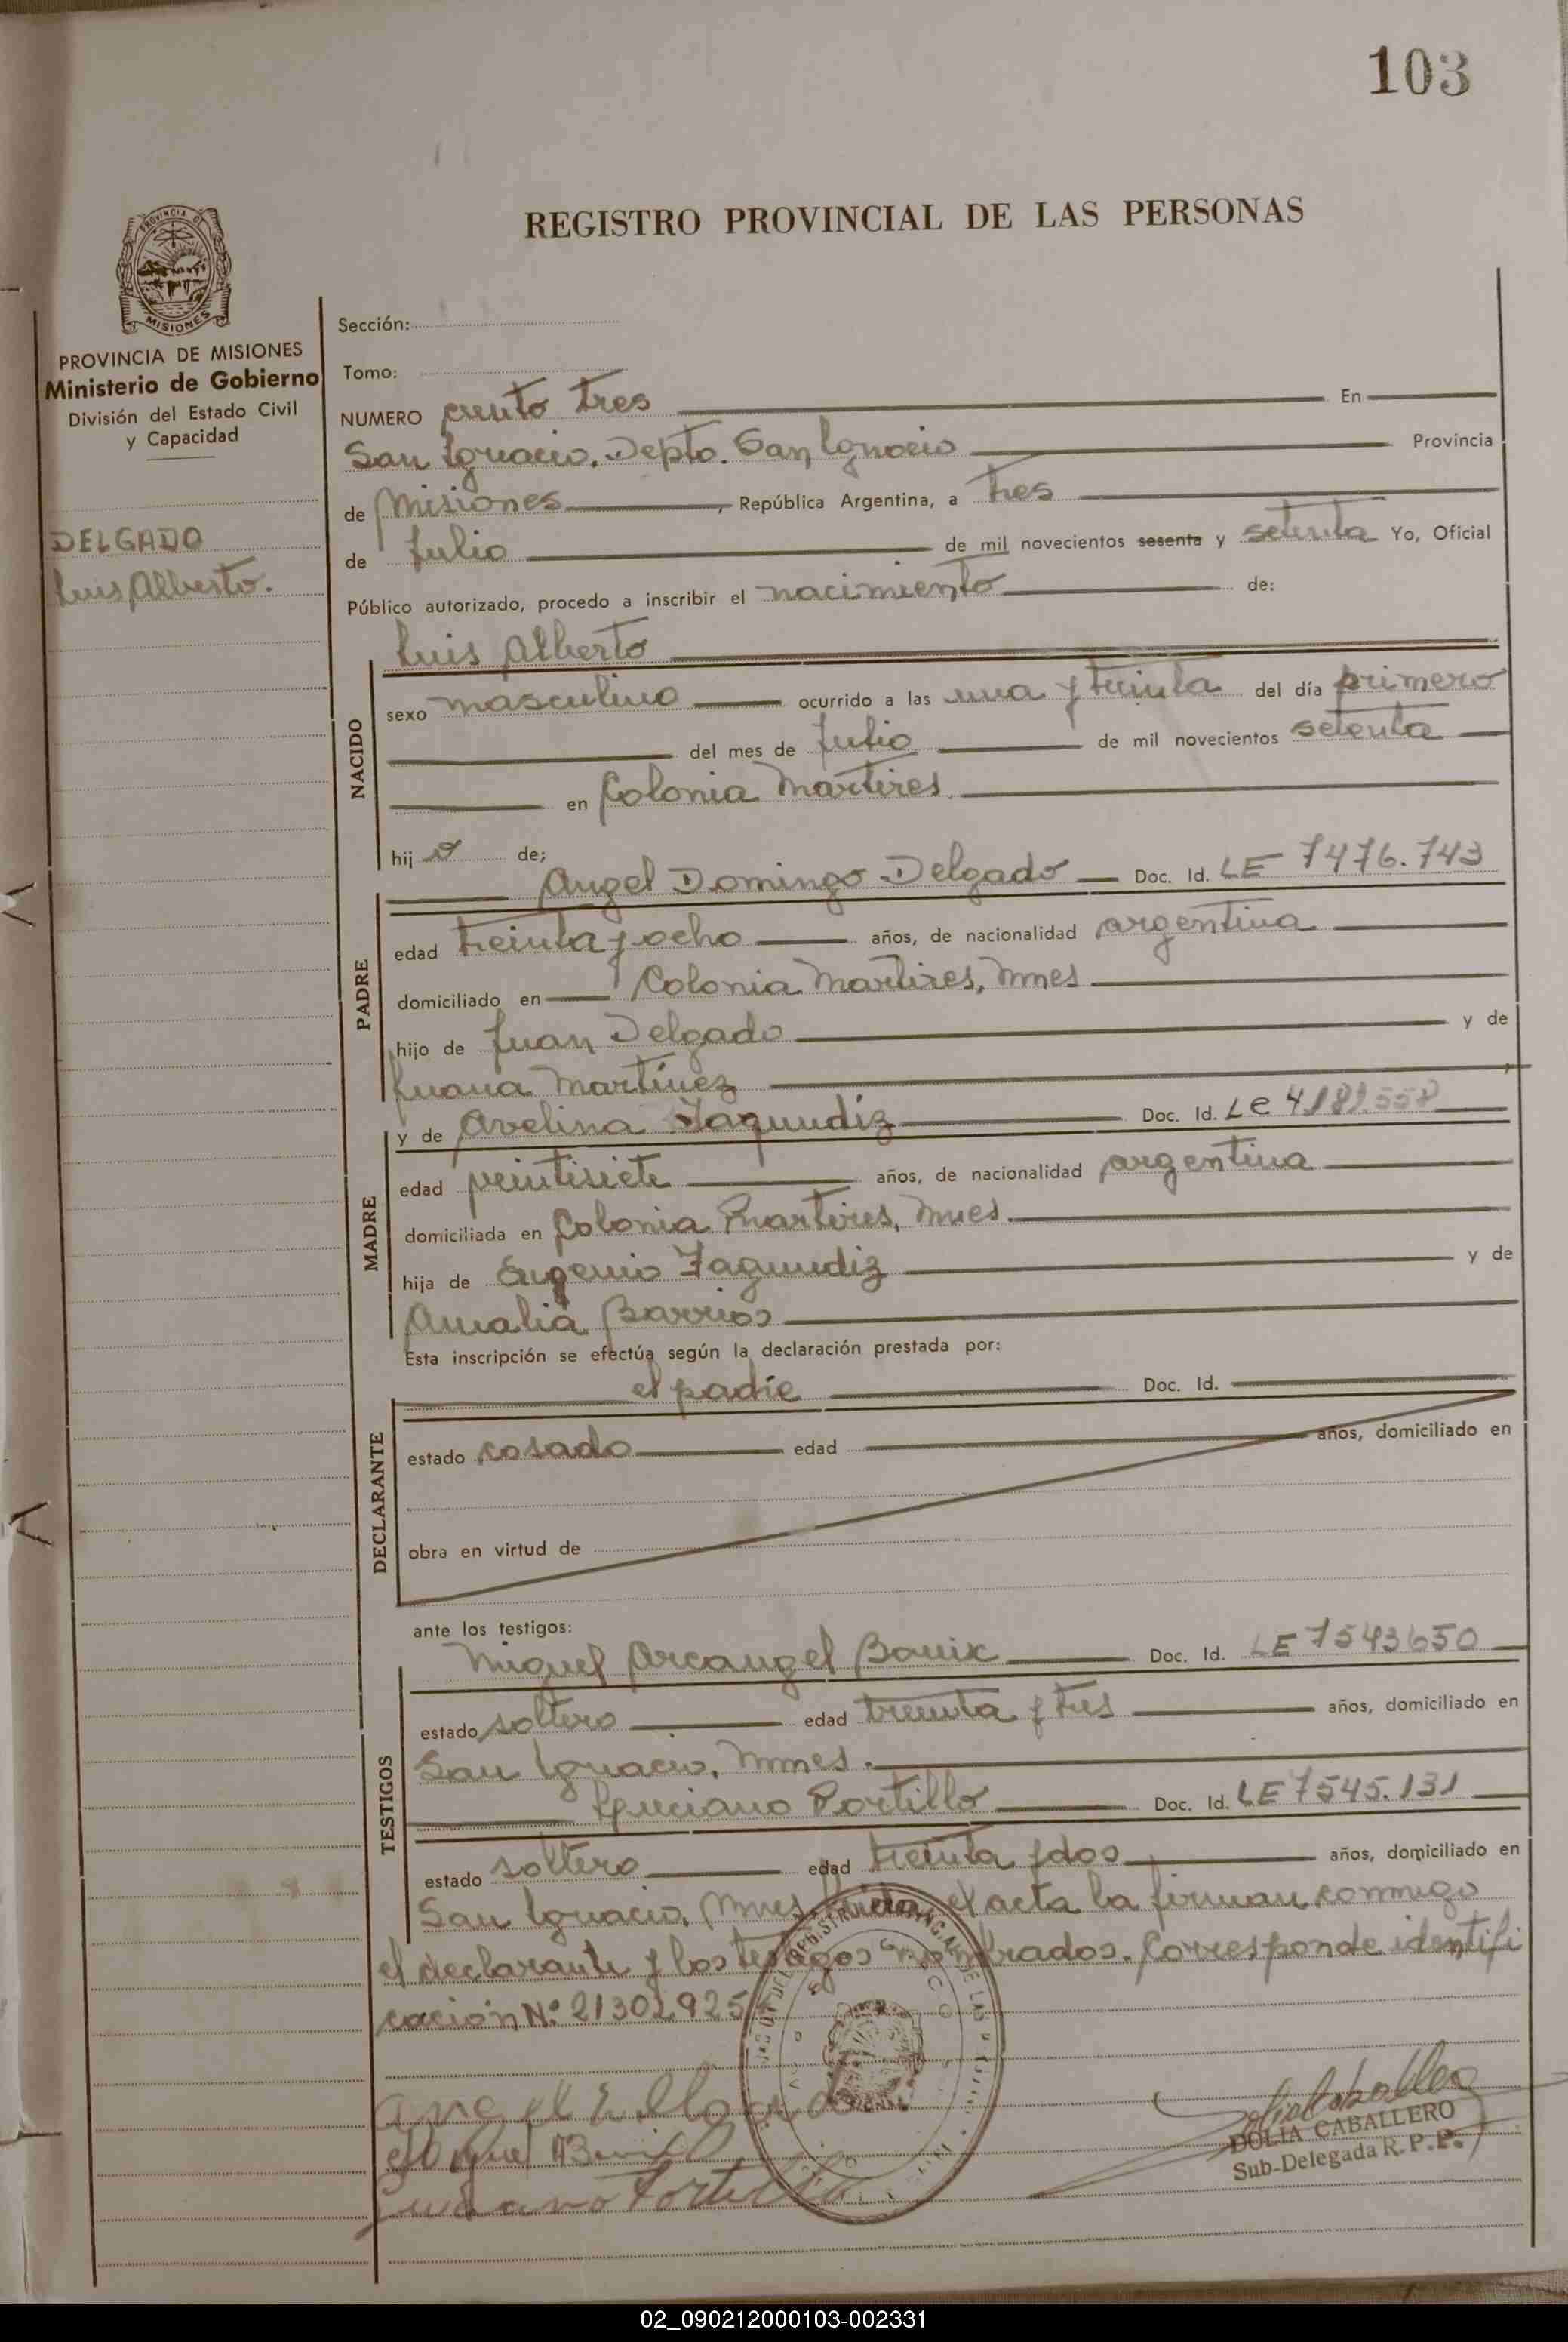 103
REGISTRO PROVINCIAL DE LAS PERSONAS
PROVINCIA DE
MISIONES
PROVINCIA DE MISIONES
Ministerio de Gobierno
División del Estado Civil
y Capacidad
DELGADO
Luis Alberto.
Sección:
Tomo:
NUMERO ciento tres En
San Ignacio, Depto. San Ignacio Provincia
de Misiones, República Argentina, a tres
de Julio de mil novecientos sesenta y setenta Yo, Oficial
Público autorizado, procedo a inscribir el nacimiento de:
Luis Alberto
NACIDO
sexo masculino ocurrido a las una y treinta del día primero
del mes de Julio de mil novecientos setenta
en Colonia Martires
hij o de;
Angel Domingo Delgado Doc. Id. LE 7476.743
PADRE
edad treinta y ocho años, de nacionalidad argentina
domiciliado en Colonia Martires, Mnes
hijo de Juan Delgado y de
Juana Martínez
y de Avelina Fagundiz Doc. Id. Le 4.181.558
MADRE
edad veintisiete años, de nacionalidad argentina
domiciliada en Colonia Martires, Mnes.
hija de Eugenio Fagundiz y de
Amalia Barrios
Esta inscripción se efectúa según la declaración prestada por:
el padre Doc. Id.
DECLARANTE
estado casado edad años, domiciliado en
obra en virtud de
ante los testigos:
Miguel Arcangel Doc. Id. LE 7543650
TESTIGOS
estado soltero edad treinta y tres años, domiciliado en
San Ignacio, Mnes.
Luciano Portillo Doc. Id. LE 7545.131
estado soltero edad treinta y dos años, domiciliado en
San Ignacio, Mnes. Leída el acta la firman conmigo
el declarante y los testigos nombrados. Corresponde identifi
cación Nº 21302925
Luciano Portillo
DOLIA CABALLERO
Sub-Delegada R.P.P.
02_090212000103-002331